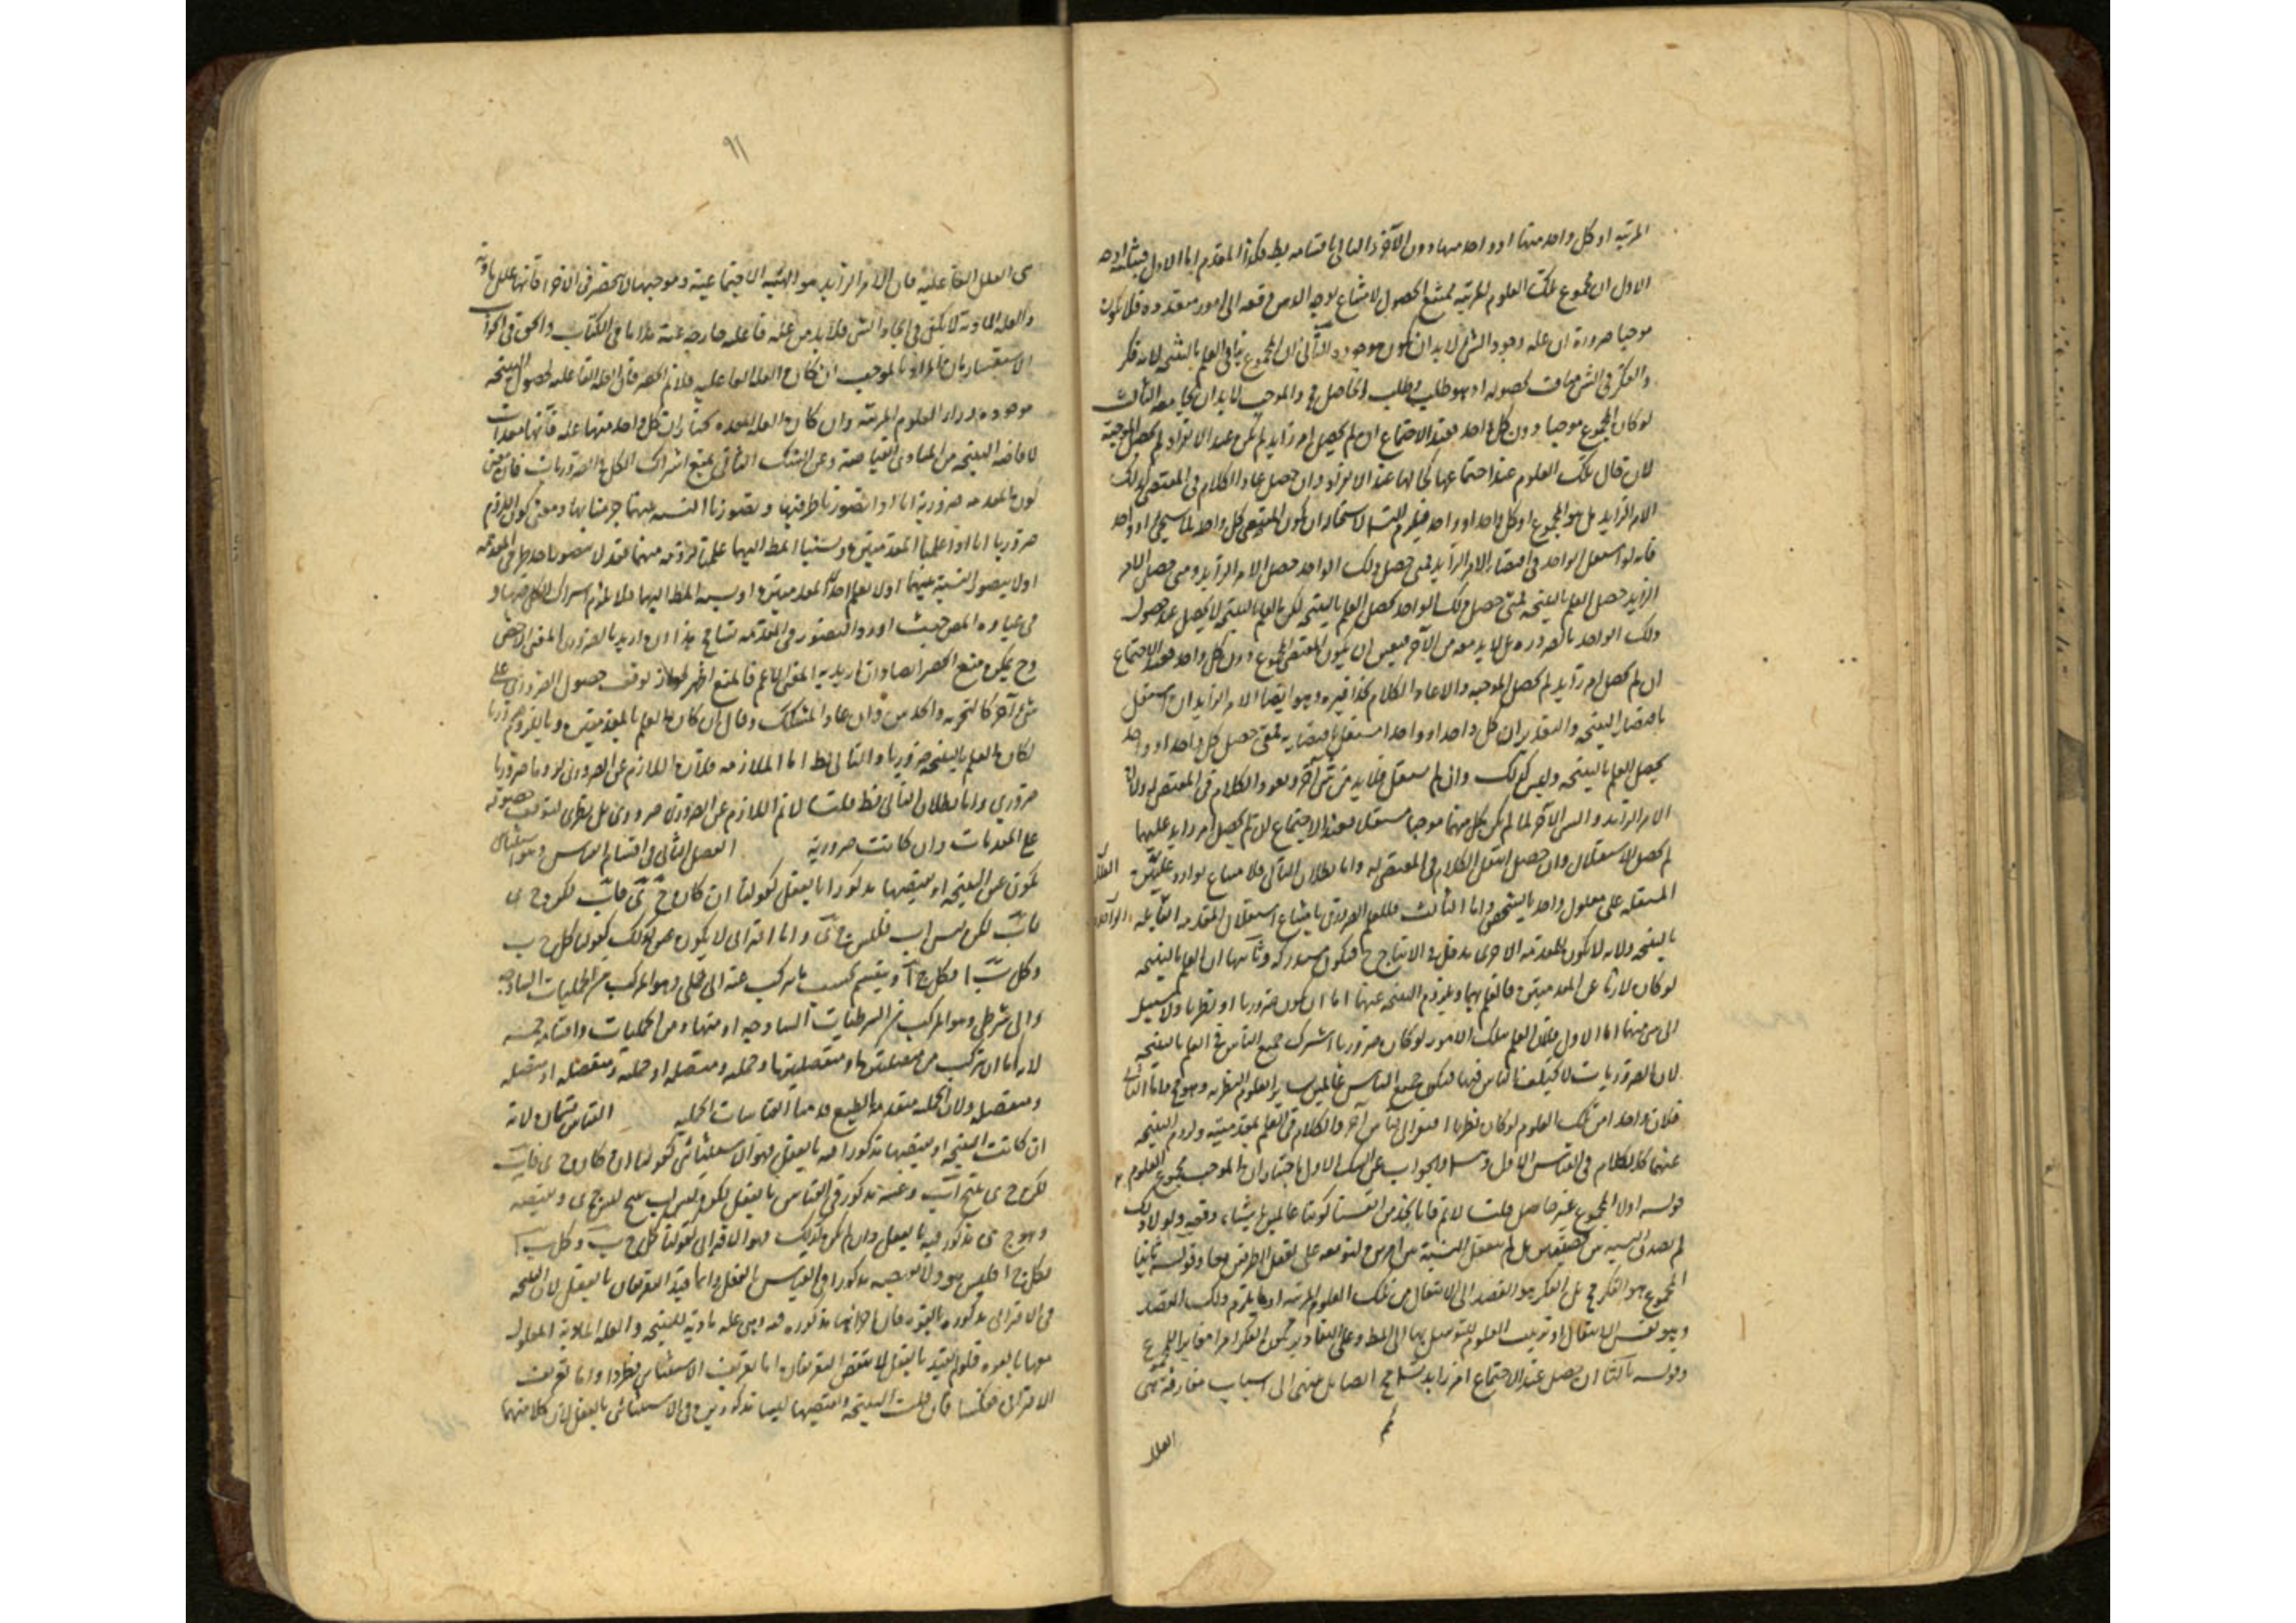 المرتبة او كل واحد منها او واحد منها دون الآخر والتالى باقسامه بط فكذا المقدم اما الاول فبثلثة اوجه
الاول ان مجموع تلك العلوم المرتبة ممتنع الحصول لامتناع توجه الذهن دفعة الى امور متعددة فلا يكون
موجبا ضرورة ان علة وجود الشئ لا بد ان يكون موجودا الثانى ان المجموع ينافى العلم بالنتيجة لانه فكر
والفكر فى الشئ ينافى حصوله اذ هو طلب وطلب الحاصل مح والموجب لا بد ان يجامعه الثالث
لو كان المجموع موجبا دون كل واحد فعند الاجتماع ان لم يحصل امر زايد لم يكن عند الانفراد لم يحصل الموجبة
لان حال تلك العلوم عند اجتماعها كحالها عند الانفراد وان حصل عاد الكلام فى المقتضى لذلك
الامر الزايد هل هو المجموع او كل واحد او واحد فيلزم التس لاستحالة ان يكون المقتضى كل واحد او واحد
فانه لو استقل الواحد فى اقتضاء الامر الزايد فمتى حصل ذلك الواحد حصل الامر الزايد ومتى حصل الامر
الزايد حصل العلم بالنتيجة فمتى حصل ذلك الواحد حصل العلم بالنتيجة لكن العلم بالنتيجة لا يحصل عند حصول
ذلك الواحد بالضرورة بل لا بد معه من الآخر فتعين ان يكون المقتضى المجموع دون كل واحد فعند الاجتماع
ان لم يحصل امر زايد لم يحصل الموجبية والا عاد الكلام وهو ايضا الامر الزايد ان استقل
باقتضاء النتيجة والتقدير ان كل واحد او واحدا مستقل باقتضايه فمتى حصل كل واحد او واحد
يحصل العلم بالنتيجة وليس كذلك وان لم يستقل فلا بد من شئ آخر ويعود الكلام فى المقتضى له ولان
الامر الزايد والشئ الآخر لما لم يكن كل منهما موجبا مستقلا فعند الاجتماع ان لم يحصل امر زايد عليهما
لم يحصل الاستقلال وان حصل انتقل الكلام فى المقتضى له واما بطلان التالى فلامتناع توارد العلل
المستقلة على معلول واحد بالشخص واما الثالث فللعلم الضرورى بامتناع استقلال المقدمة القايلة الواحدة
بالنتيجة ولانه لا يكون للمقدمة الاخرى مدخل فى الانتاج ح فيكون مستدركة وثانيها ان العلم بالنتيجة
لو كان لازما عن المقدمتين فالعلم بهما وبلزوم النتيجة عنهما اما ان يكون ضروريا او نظريا ولا سبيل
الى شئ منهما اما الاول فلان العلم بتلك الامور لو كان ضروريا اشترك جميع الناس فى العلم بالنتيجة
لان الضروريات لا يختلف الناس فيها فيكون جميع الناس عالمين بسائر العلوم النظرية وهو مح واما الثانى
فلان واحدا من تلك العلوم لو كان نظريا افتقر الى قياس آخر والكلام فى العلم بمقدمتيه ولزوم النتيجة
عنهما كالكلام فى القياس الاول وتس والجواب عن الشك الاول باختيار ان الموجب مجموع العلوم
قوله اولا المجموع غير حاصل قلت لا نم فانا نجد من انفسنا كوننا عالمين باشياء دفعة ولولا ذلك
لم يصدق بل لم نعقل النسبة بين امرين لتوقفه على تعقل الطرفين معا وقوله ثانيا
المجموع هو الفكر مح بل الفكر هو القصد الى الانتقال من تلك العلوم المرتبة او ما يلزم ذلك القصد
وهو نفس الانتقال او ترتيب العلوم للتوصل بها الى المط وعلى التقادير يكون الفكر امرا مغايرا للمجموع
وقوله ثالثا ان حصل عند الاجتماع امر زايد تس مح ايضا بل ينتهى الى اسباب مفارقة هى
العلل
٩١
هى العلل الفاعلية فان الامر الزايد هو الهيئة الاجتماعية وموجبها لا ينحصر فى الاجزاء فانها علل مادية
والعلة المادية لا تكفى فى ايجاد الشئ فلا بد من علة فاعلة خارجة عنه هذا ما فى الكتاب والحق فى الجواب
الاستفسار بان المراد بالموجب ان كان العلة الفاعلية فلا نم الحصر فان العلة الفاعلة لحصول النتيجة
موجودة وراء العلوم المرتبة وان كان العلة المعدة نختار ان كل واحد منها علة فانها معدات
لافاضة النتيجة من المبادى الفياضة وعن الشك الثانى بمنع اشتراك الكل فى الضروريات فان معنى
كون المقدمة ضرورية انا اذا تصورنا طرفيها وتصورنا النسبة بينهما جزمنا بها ومعنى كون اللزوم
ضروريا انا اذا علمنا المقدمتين ونسبنا المط اليهما علمنا لزومه منهما فقد لا يتصور احد طرفى المقدمة
او لا يتصور النسبة بينهما او لا يعلم احدى المقدمتين او نسبة المط اليها فلا يلزم اشتراك الكل فيها و
فى عبارة المص حيث اورد التصور فى المقدمة تسامح هذا ان اريد بالضرورى المعنى الاخص
وح يمكن منع الحصر ايضا وان اريد به المعنى الاعم فالمنع اظهر لجواز توقف حصول الضرورى على
شئ آخر كالتجربة والحدس وان عاد المشكك وقال ان كان العلم بالمقدمتين وباللزوم ضروريا
لكان العلم بالنتيجة ضروريا والتالى بط اما الملازمة فلان اللازم عن الضرورى لزوما ضروريا
ضرورى واما بطلان التالى فظ قلنا لا نم ان اللازم عن الضرورى ضرورى بل نظرى لتوقف حصوله
على المقدمات وان كانت ضرورية الفصل الثانى فى اقسام القياس وهو استثنائى
يكون عين النتيجة او نقيضها مذكورا بالفعل كقولنا ان كان ج د فاب لكن ج د
فاب لكن ليس اب فليس ج د واما اقترانى لا يكون كذلك كقولنا كل ج ب
وكل ب ا فكل ج ا وينقسم بحسب ما تركب عنه الى حملى وهو المركب من الحمليات الساذجة
والى شرطى وهو المركب من الشرطيات الساذجة او منها ومن الحمليات واقسامه خمسة
لانه اما ان تركب من متصلتين او منفصلتين او حملية ومتصلة او حملية ومنفصلة او متصلة
ومنفصلة ولان الحملية متقدمة بالطبع قدمنا القياسات الحملية القياس قسمان لانه
ان كانت النتيجة او نقيضها مذكورا فيه بالفعل فهو الاستثنائى كقولنا ان كان ج د فاب
لكن ج د ينتج اب وعينه مذكور فى القياس بالفعل لكن ليس اب ينتج ليس ج د ونقيضه
وهو ج د مذكور فيه بالفعل وان لم يكن كذلك فهو الاقترانى كقولنا كل ج ب وكل ب ا
فكل ج ا فليس هو ولا نقيضه مذكورا فى القياس بالفعل وانما قيد التعريفان بالفعل لان النتيجة
فى الاقترانى مذكورة بالقوة فان اجزائها مذكورة فيه وهى علة مادية للنتيجة والعلة المادية المعلول
معها بالقوة فلو لم يقيد بالفعل لانتقض التعريفان اما تعريف الاستثنائى فطردا واما تعريف
الاقترانى فعكسا فان قلت النتيجة ونقيضها ليسا مذكورين فى الاستثنائى بالفعل لان كلا منهما